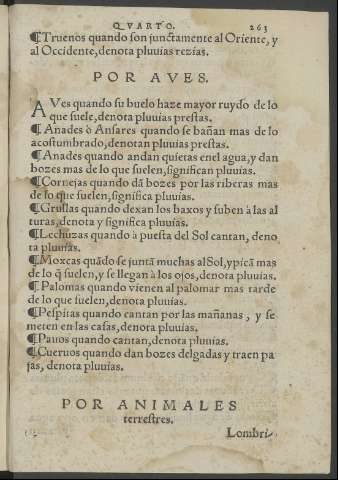 QVARTO. 263
¶Truenos quando son junctamente al Oriente, y
al Occidente, denota pluuias rezias.
POR AVES.
AVes quando su buelo haze mayor ruydo de lo
que suele, denota pluuias prestas.
¶Anades ò Ansares quando se bañan mas de lo
acostumbrado, denotan pluuias prestas.
¶Anades quando andan quietas enel agua, y dan
bozes mas de lo que suelen, significan pluuias.
¶Cornejas quando dã bozes por las riberas mas
de lo que suelen, significa pluuias.
¶Grullas quando dexan los baxos y suben à las al
turas, denota y significa pluuias.
¶Lechuzas quando à puesta del Sol cantan, deno
ta pluuias.
¶Moxcas quãdo se juntã muchas al Sol, y picã mas
de lo q̃ suelen, y se llegan à los ojos, denota pluuias.
¶Palomas quando vienen al palomar mas tarde
de lo que suelen, denota pluuias.
¶Pespitas quando cantan por las mañanas, y se
meten en las casas, denota pluuias.
¶Pauos quando cantan, denota pluuias.
¶Cueruos quando dan bozes delgadas y traen pa
jas, denota pluuias.
POR ANIMALES
terrestres.
Lombri-